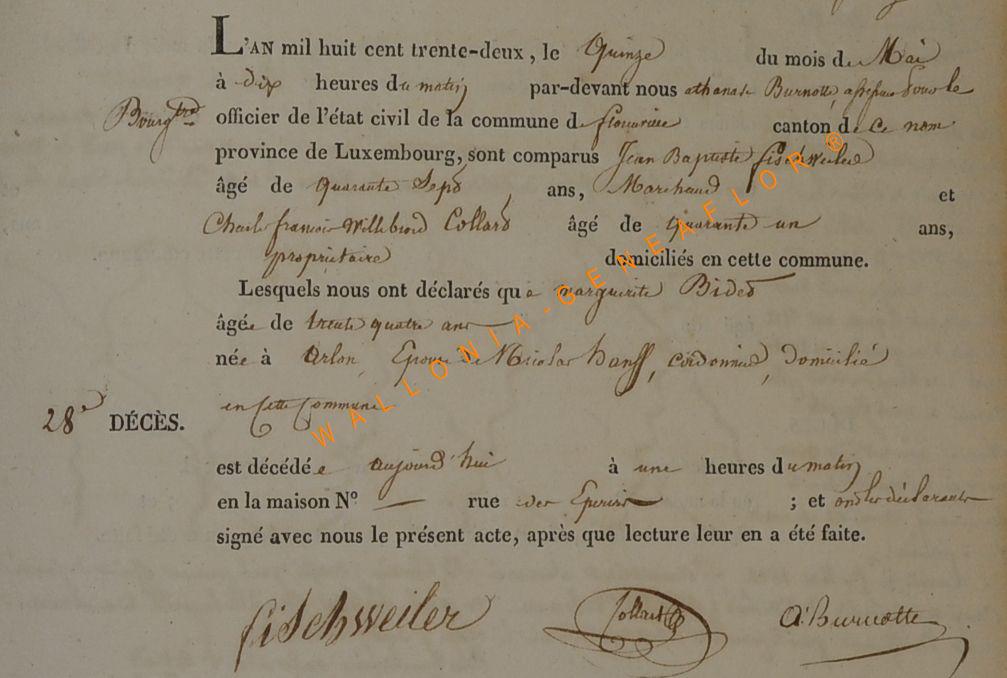 L'AN mil huit cent trente-deux, le Quinze du mois de Mai
à dix heures du matin par-devant nous athanase Burnotte, assesseur
Bourgtre officier de l'état civil de la commune de florenville canton de Ce nom
province de Luxembourg, sont comparus Jean Baptiste fischweiler
âgé de quarante Sept ans, Marchand et
Charles françois Willebrord Collard âgé de quarante un ans,
propriétaire domiciliés en cette commune.
Lesquels nous ont déclarés que marguerite Bidet
âgée de trente quatre ans
née à Arlon, Epouse de Nicolas hanff, cordonnier, domicilié
en Cette Commune
28e DÉCÈS.
est décédée aujourd'hui à une heures du matin
en la maison N° — rue des ; et ont les déclarants
signé avec nous le présent acte, après que lecture leur en a été faite.
fischweiler Collard A. Burnotte
WALLONIA-GENEAFLOR®